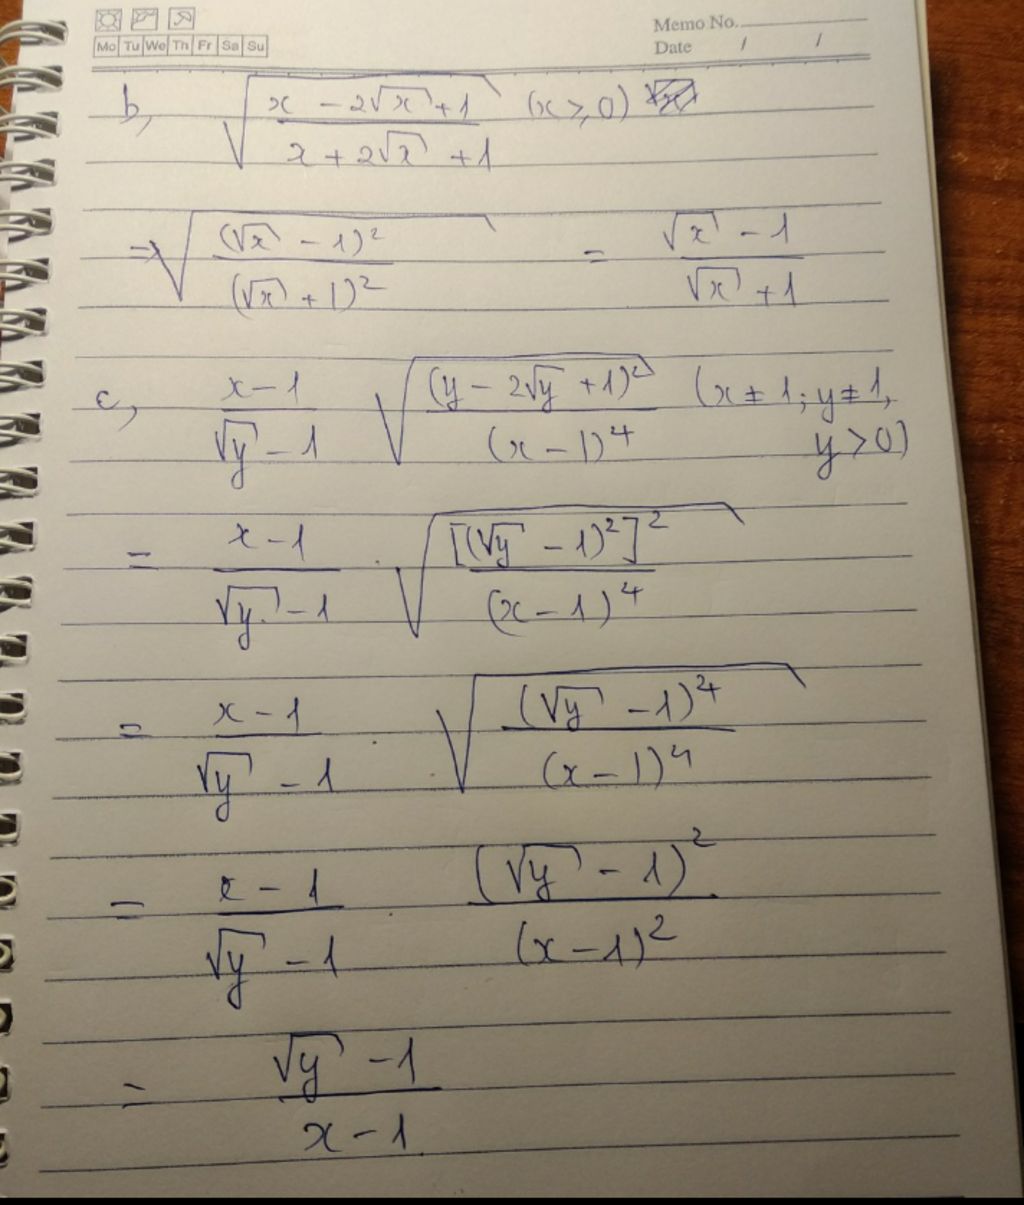 Memo No.
Mo Tu We Th Fr Sa Su
Date / /
b, √((x - 2√x + 1)/(x + 2√x + 1)) (x ⩾ 0)
= √((√x - 1)²/(√x + 1)²) = (√x - 1)/(√x + 1)
c, (x - 1)/(√y - 1) √((y - 2√y + 1)²/(x - 1)⁴) (x ≠ 1; y ≠ 1,
y > 0)
= (x - 1)/(√y - 1) . √([(√y - 1)²]²/(x - 1)⁴)
= (x - 1)/(√y - 1) . √((√y - 1)⁴/(x - 1)⁴)
= (x - 1)/(√y - 1) . (√y - 1)²/(x - 1)²
= (√y - 1)/(x - 1)